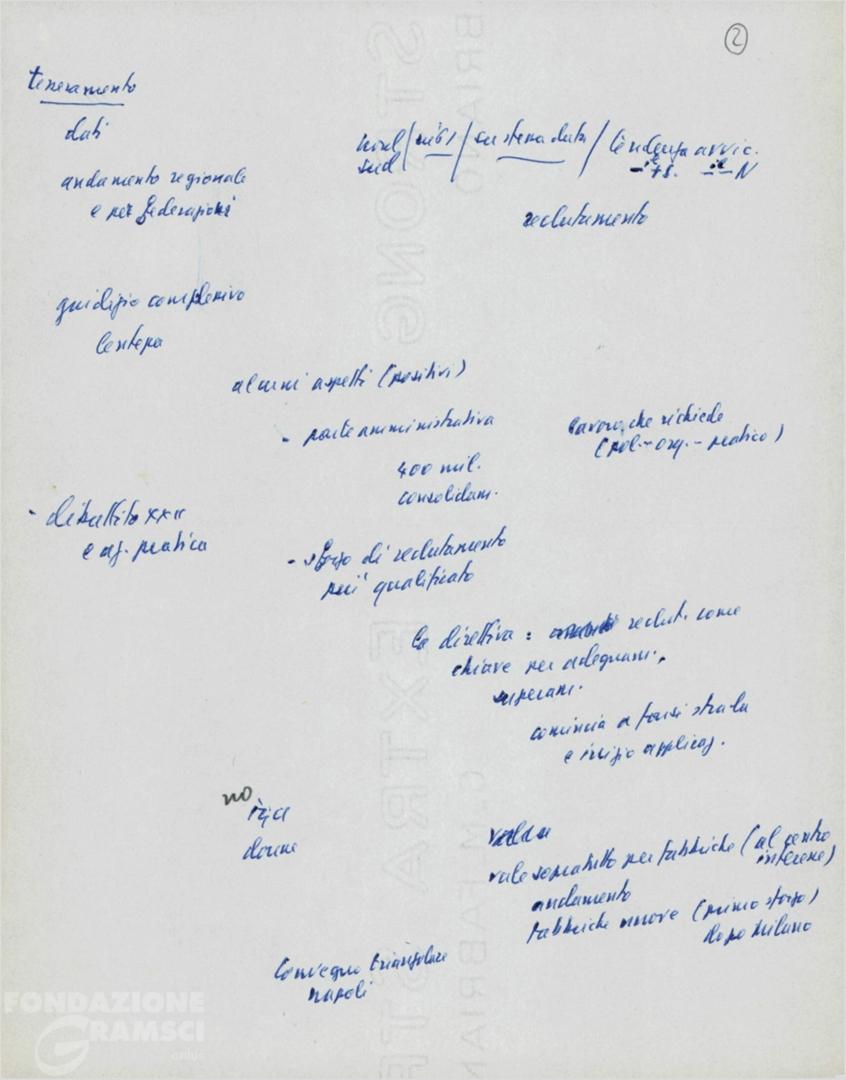 2
tesseramento
dati
nord/ni61/su stessa data/tendenza avvic.
sud
andamento regionale
e per federazioni
reclutamento
giudizio complessivo
lentezza
alcuni aspetti (positivi)
- parte amministrativa
400 mil.
consolidam.
lavoro, che richiede
(pol. - org. - pratico)
- dibattito XXII
e pratica
- sforzo di reclutamento
più qualificato
la direttiva : reclut. come
chiave per adeguam.,
superam.
comincia a farsi strada
e inizio applicaz.
no
donne
vale sopratutto per fabbriche (al centro
interesse)
andamento
fabbriche nuove (primo sforzo)
dopo Milano
Convegno triangolare
Napoli
FONDAZIONE
GRAMSCI
onlus
STRONG EXTRA
FABRIANO
C.M.FABRIANO